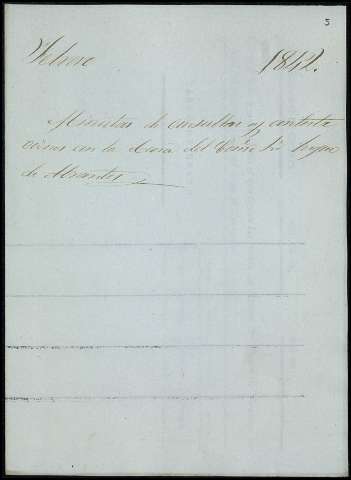 5
Febrero 1842.
Minutas de consultas y contesta
ciones con la Casa del Exmo Sr Duque
de Abrantes